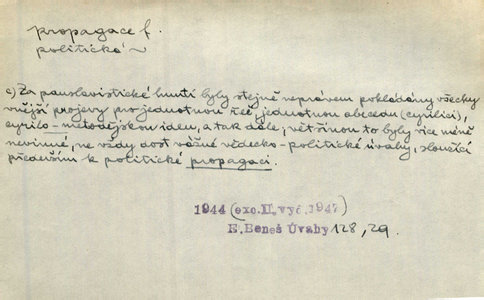 propagace f.
politická ~
c) Za panslavistické hnutí byly stejně neprávem pokládány všechny
vnější projevy pro jednotnou řeč, jednotnou abecedu (cyrilici),
cyrilo-metodějskou ideu, a tak dále; většinou to byly více méně
nevinné, ne vždy dost vážné vědecko-politické úvahy, sloužící
především k politické propagaci.
1944 (exc. II. vyd. 1947)
E. Beneš Úvahy 128, 29.